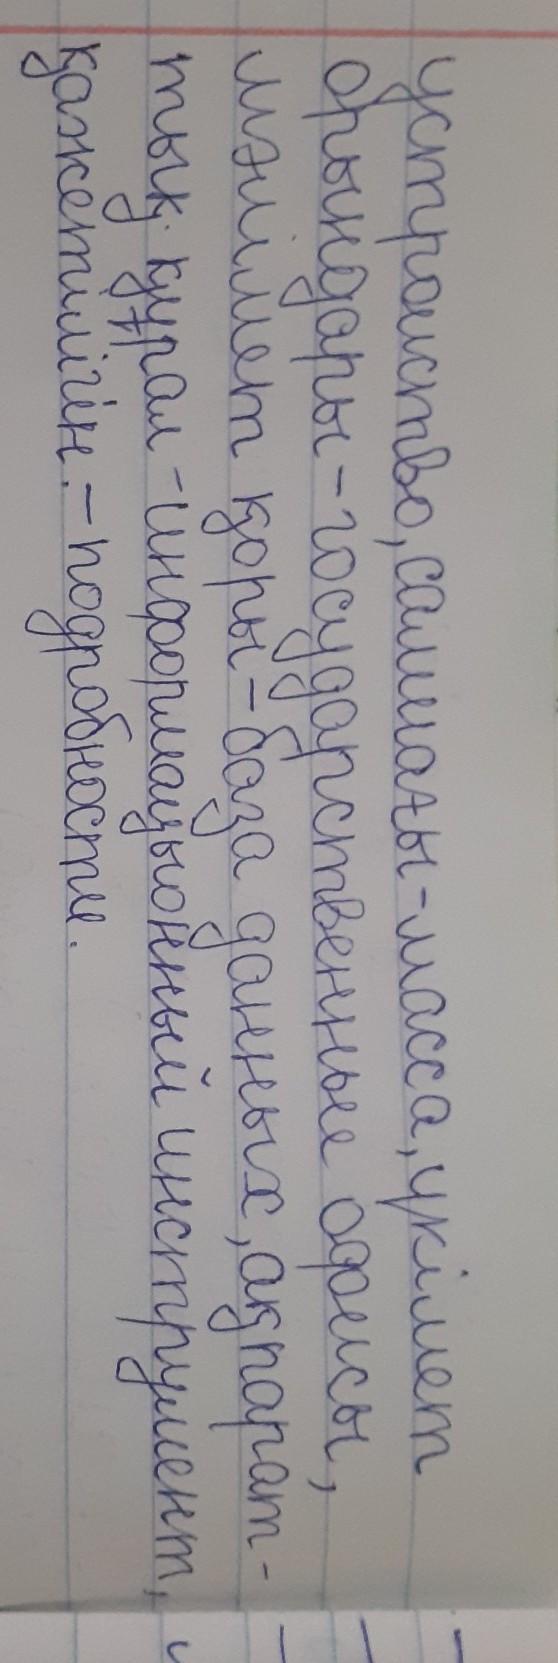 устройство, салмағы - масса, үкімет
орындары - государственные офисы,
мәлімет қоры - база данных, ақпарат-
тық құрал - информацыонный инструмент,
қажетілігін. - подробности.